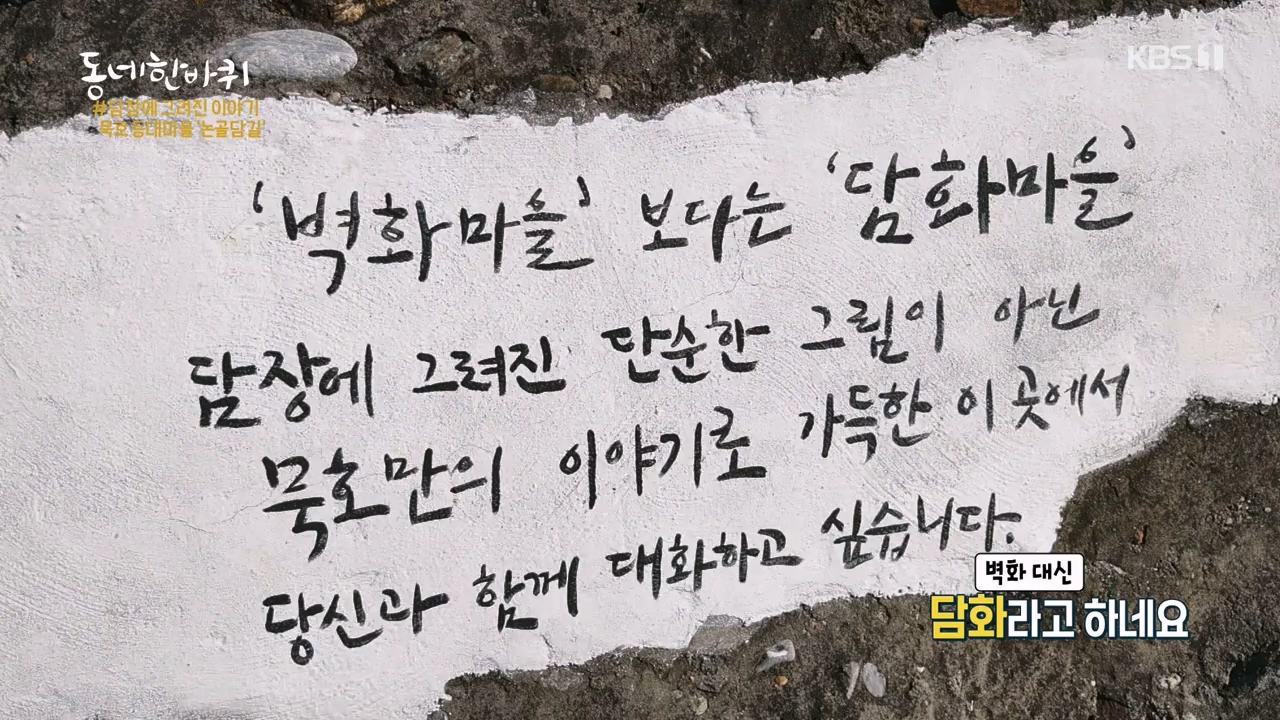 동네한바퀴
#담장에 그려진 이야기
묵호 등대마을 '논골담길'
KBS 1
'벽화마을' 보다는 '담화마을'
담장에 그려진 단순한 그림이 아닌
묵호만의 이야기로 가득한 이 곳에서
당신과 함께 대화하고 싶습니다.
벽화 대신
담화라고 하네요